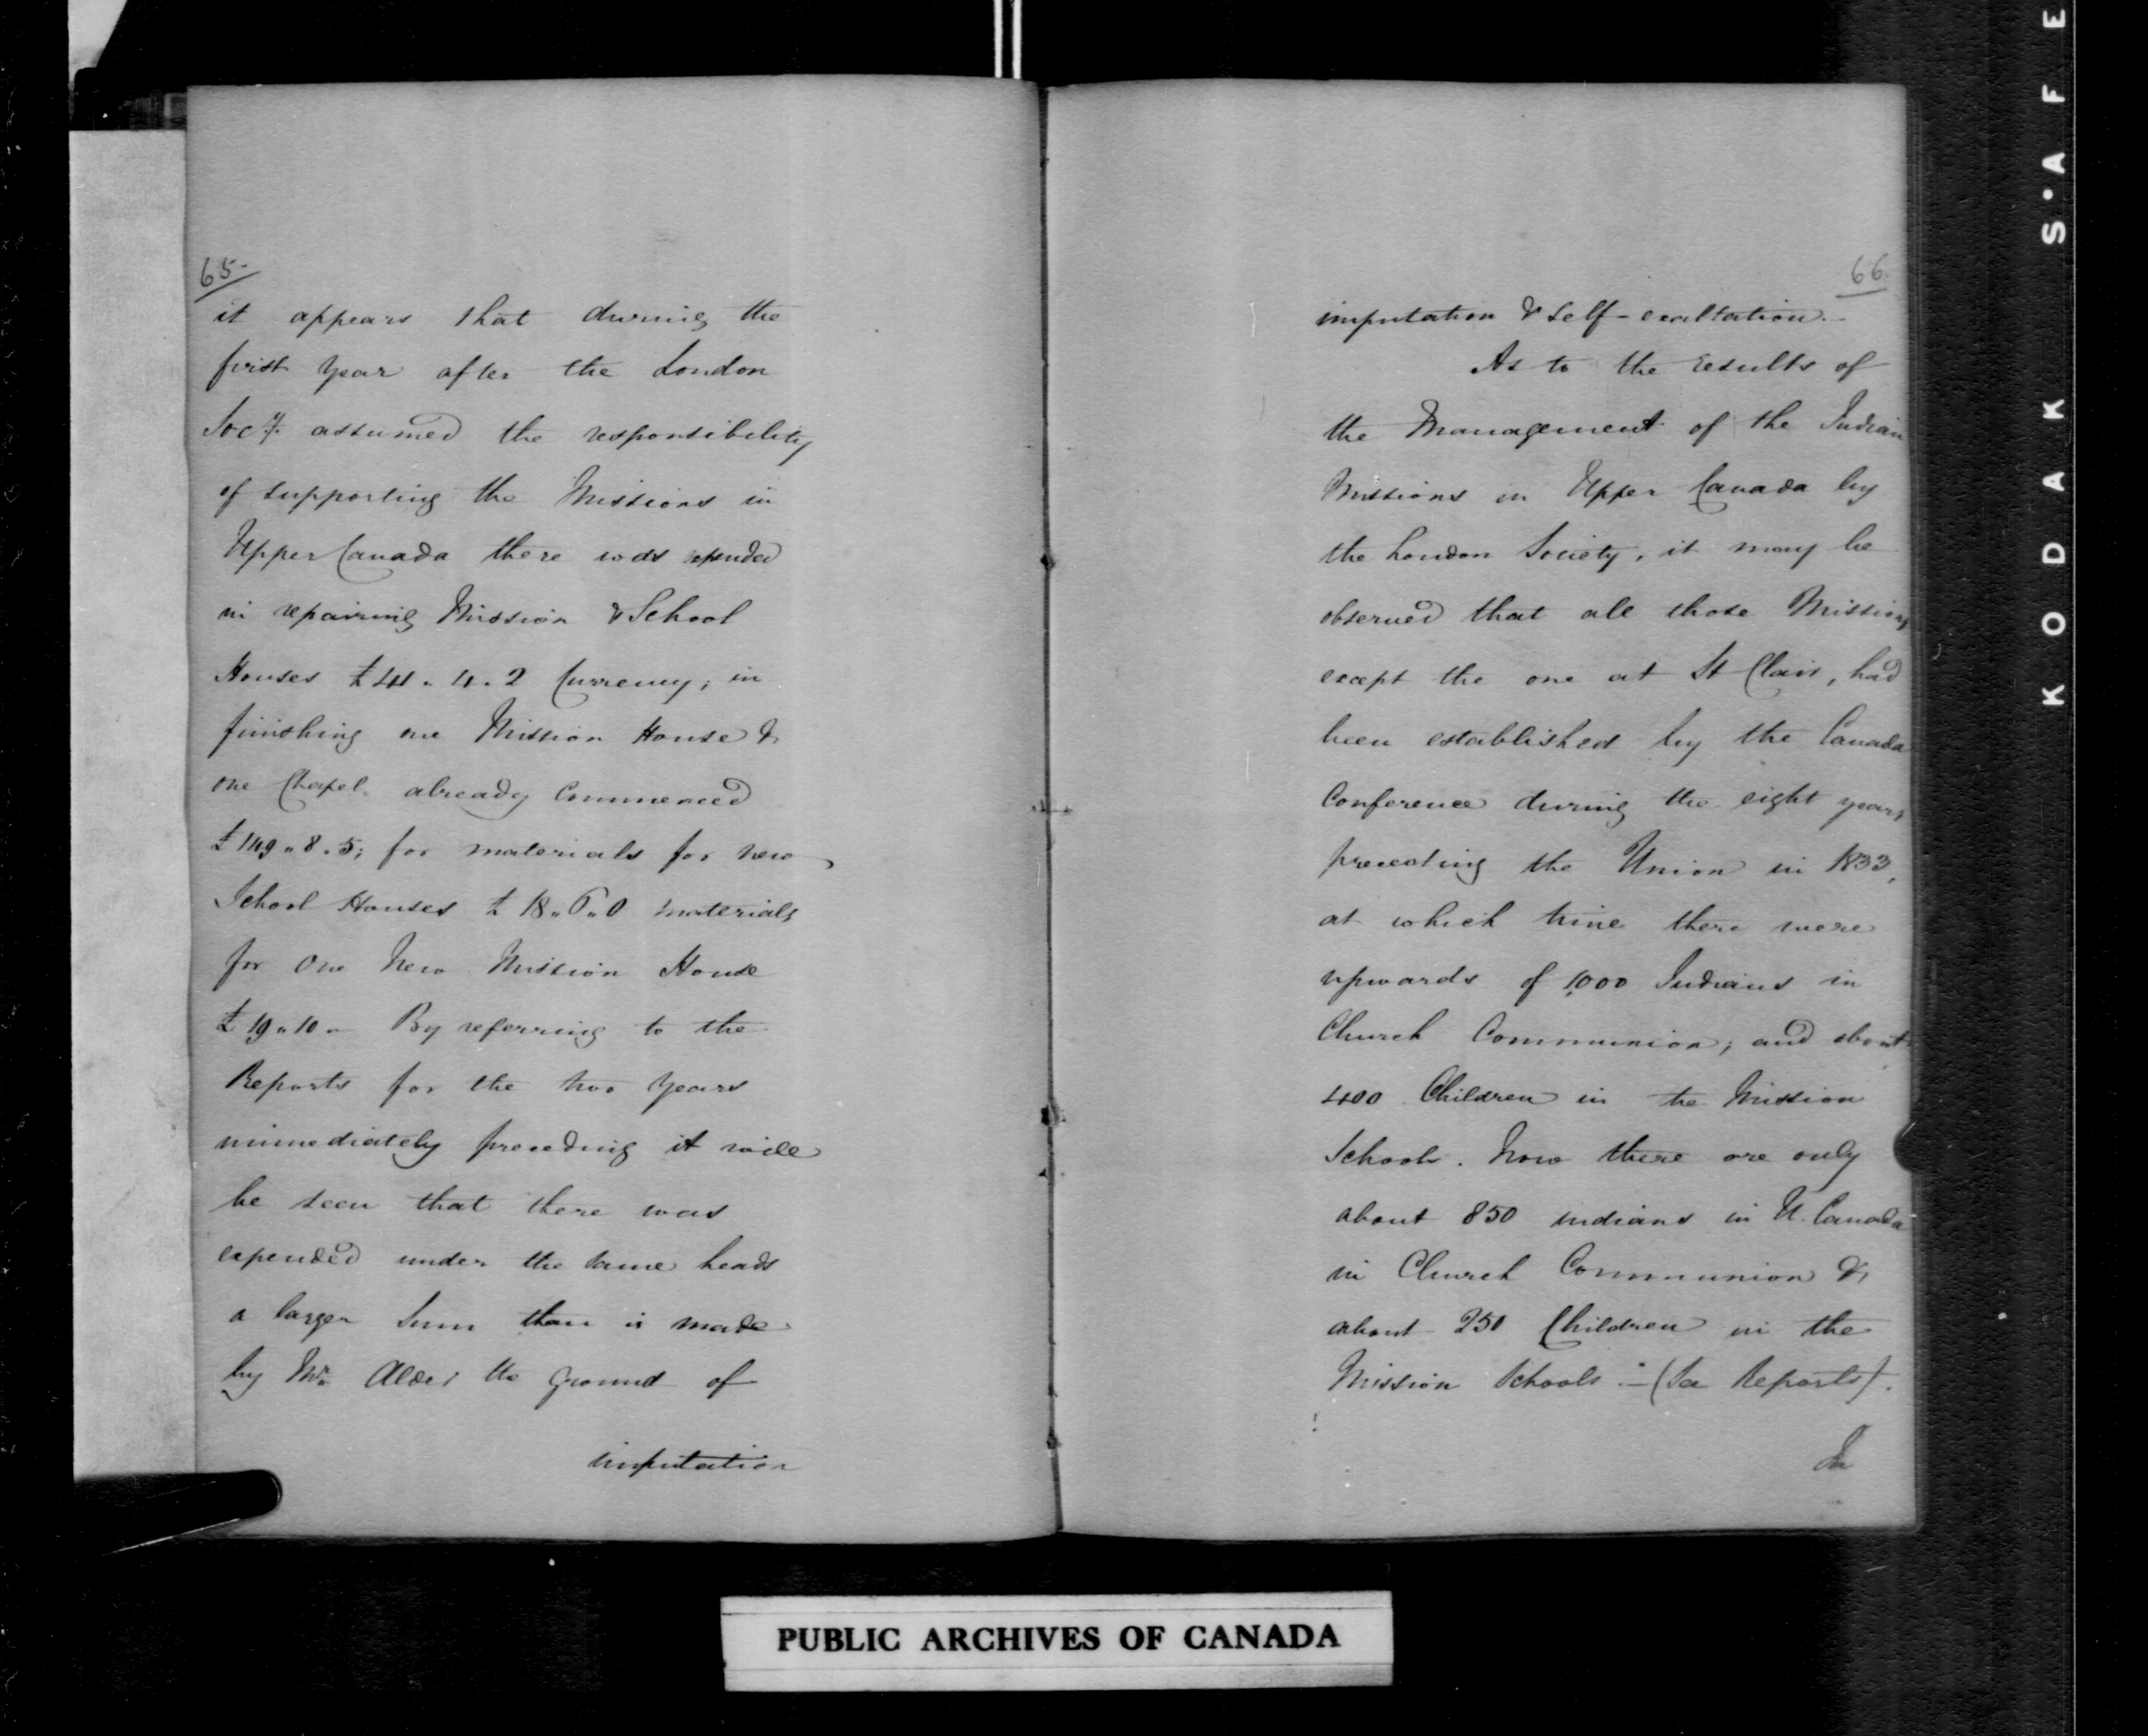 65.
it appears that during the
first year after the London
Socy. assumed the responsibility
of supporting the Missions in
Upper Canada there was expended
in repairing Mission & School
Houses £41.. 4.. 2 Currency; in
finishing one Mission House &
one Chapel already Commenced
£149.. 8.. 5; for materials for new
School Houses £18.. 6.. 0 materials
for One New Mission House
£19.. 10.. By referring to the
Reports for the two years
immediately preceding it will
be seen that there was
expended under the same heads
a larger Sum than is made
by Mr. Alder the ground of
imputation
66.
imputation & self-exaltation.
As to the results of
the Management of the Indian
Missions in Upper Canada by
the London Society, it may be
observed that all those Missions
except the one at St Clair, had
been established by the Canada
Conference during the eight years
preceding the Union in 1833,
at which time there were
upwards of 1,000 Indians in
Church Communion; and about
400 Children in the Mission
Schools. Now there are only
about 850 indians in U. Canada
in Church Communion &
about 250 Children in the
Mission Schools :- (See Reports).
In
PUBLIC ARCHIVES OF CANADA
KODAK S·AFE